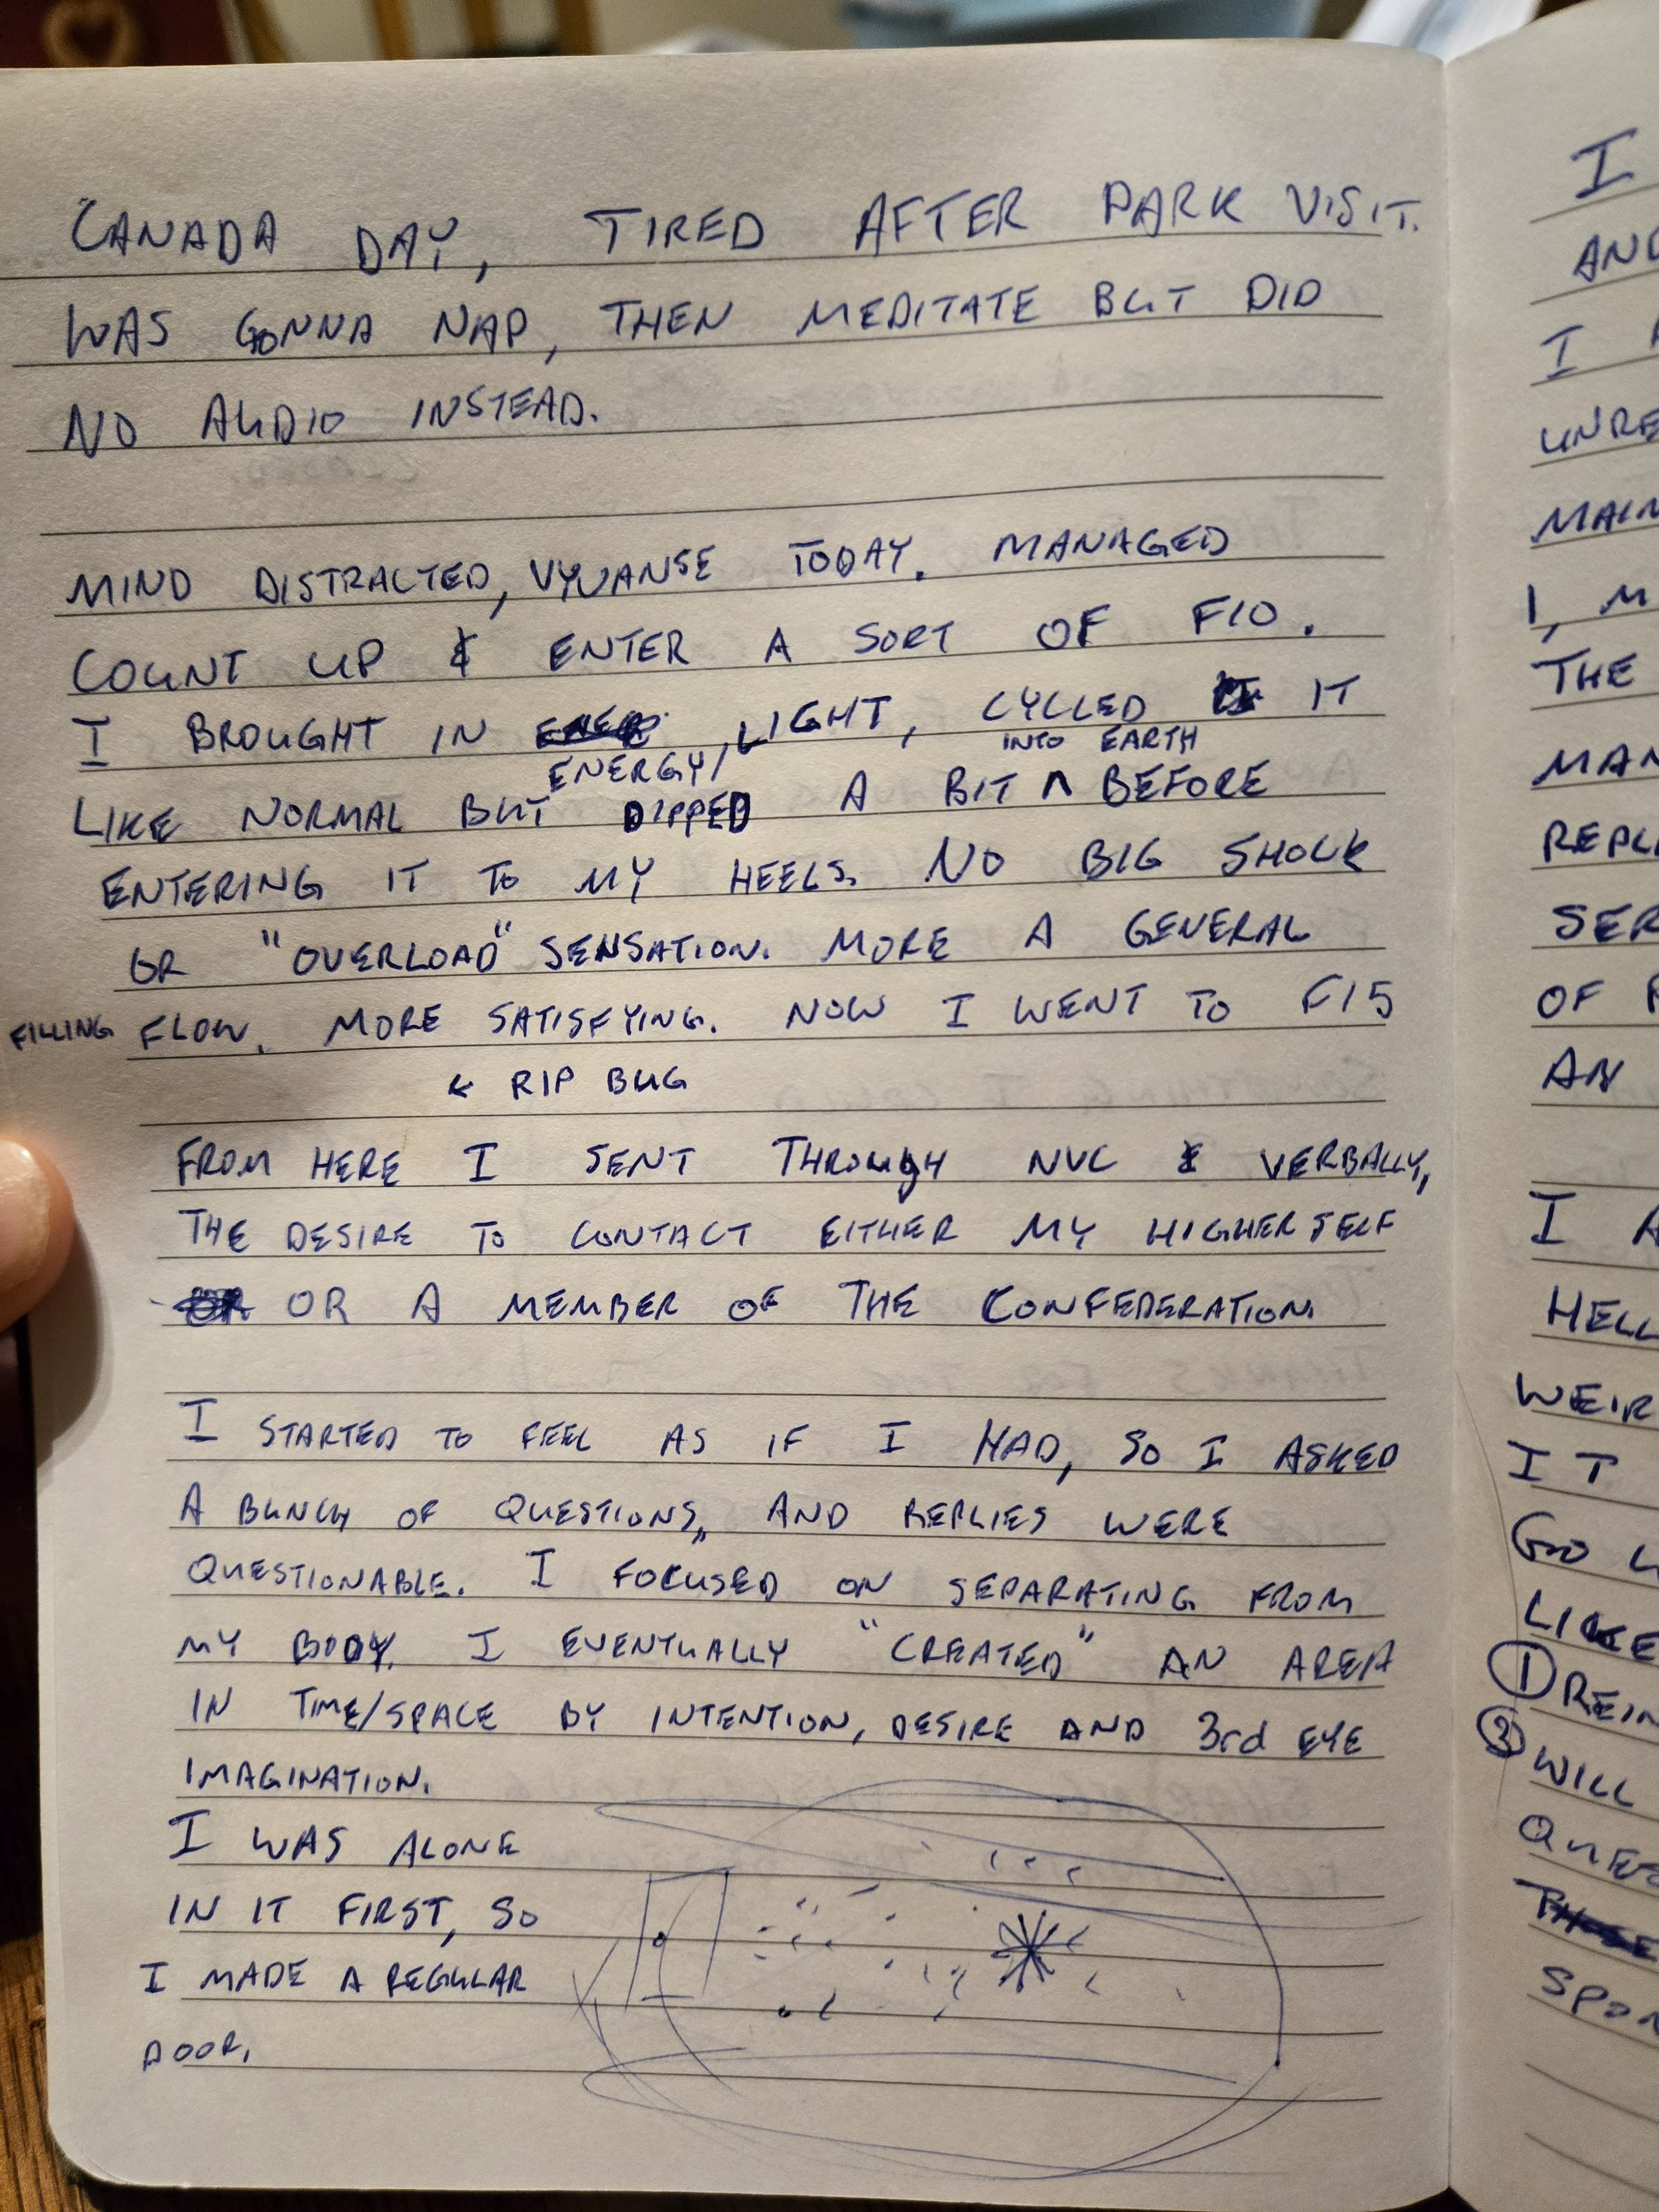 CANADA DAY, TIRED AFTER PARK VISIT.
WAS GONNA NAP, THEN MEDITATE BUT DID
NO AUDIO INSTEAD.
MIND DISTRACTED, VYVANSE TODAY. MANAGED
COUNT UP & ENTER A SORT OF F10.
I BROUGHT IN ENERGY/LIGHT, CYCLED IT
LIKE NORMAL BUT DIPPED A BIT INTO EARTH BEFORE
ENTERING IT TO MY HEELS. NO BIG SHOCK
OR "OVERLOAD" SENSATION. MORE A GENERAL
FILLING FLOW. MORE SATISFYING. NOW I WENT TO F15
← RIP BUG
FROM HERE I SENT THROUGH NVC & VERBALLY,
THE DESIRE TO CONTACT EITHER MY HIGHER SELF
OR A MEMBER OF THE CONFEDERATION.
I STARTED TO FEEL AS IF I HAD, SO I ASKED
A BUNCH OF QUESTIONS, AND REPLIES WERE
QUESTIONABLE. I FOCUSED ON SEPARATING FROM
MY BODY. I EVENTUALLY "CREATED" AN AREA
IN TIME/SPACE BY INTENTION, DESIRE AND 3rd EYE
IMAGINATION.
I WAS ALONE
IN IT FIRST, SO
I MADE A REGULAR
DOOR.
I
AND
I
MAIN
I, M
THE
OF
AN
I A
HELL
WEIR
IT
GO
LIKE
① REIN
② WILL
QUES
SPON